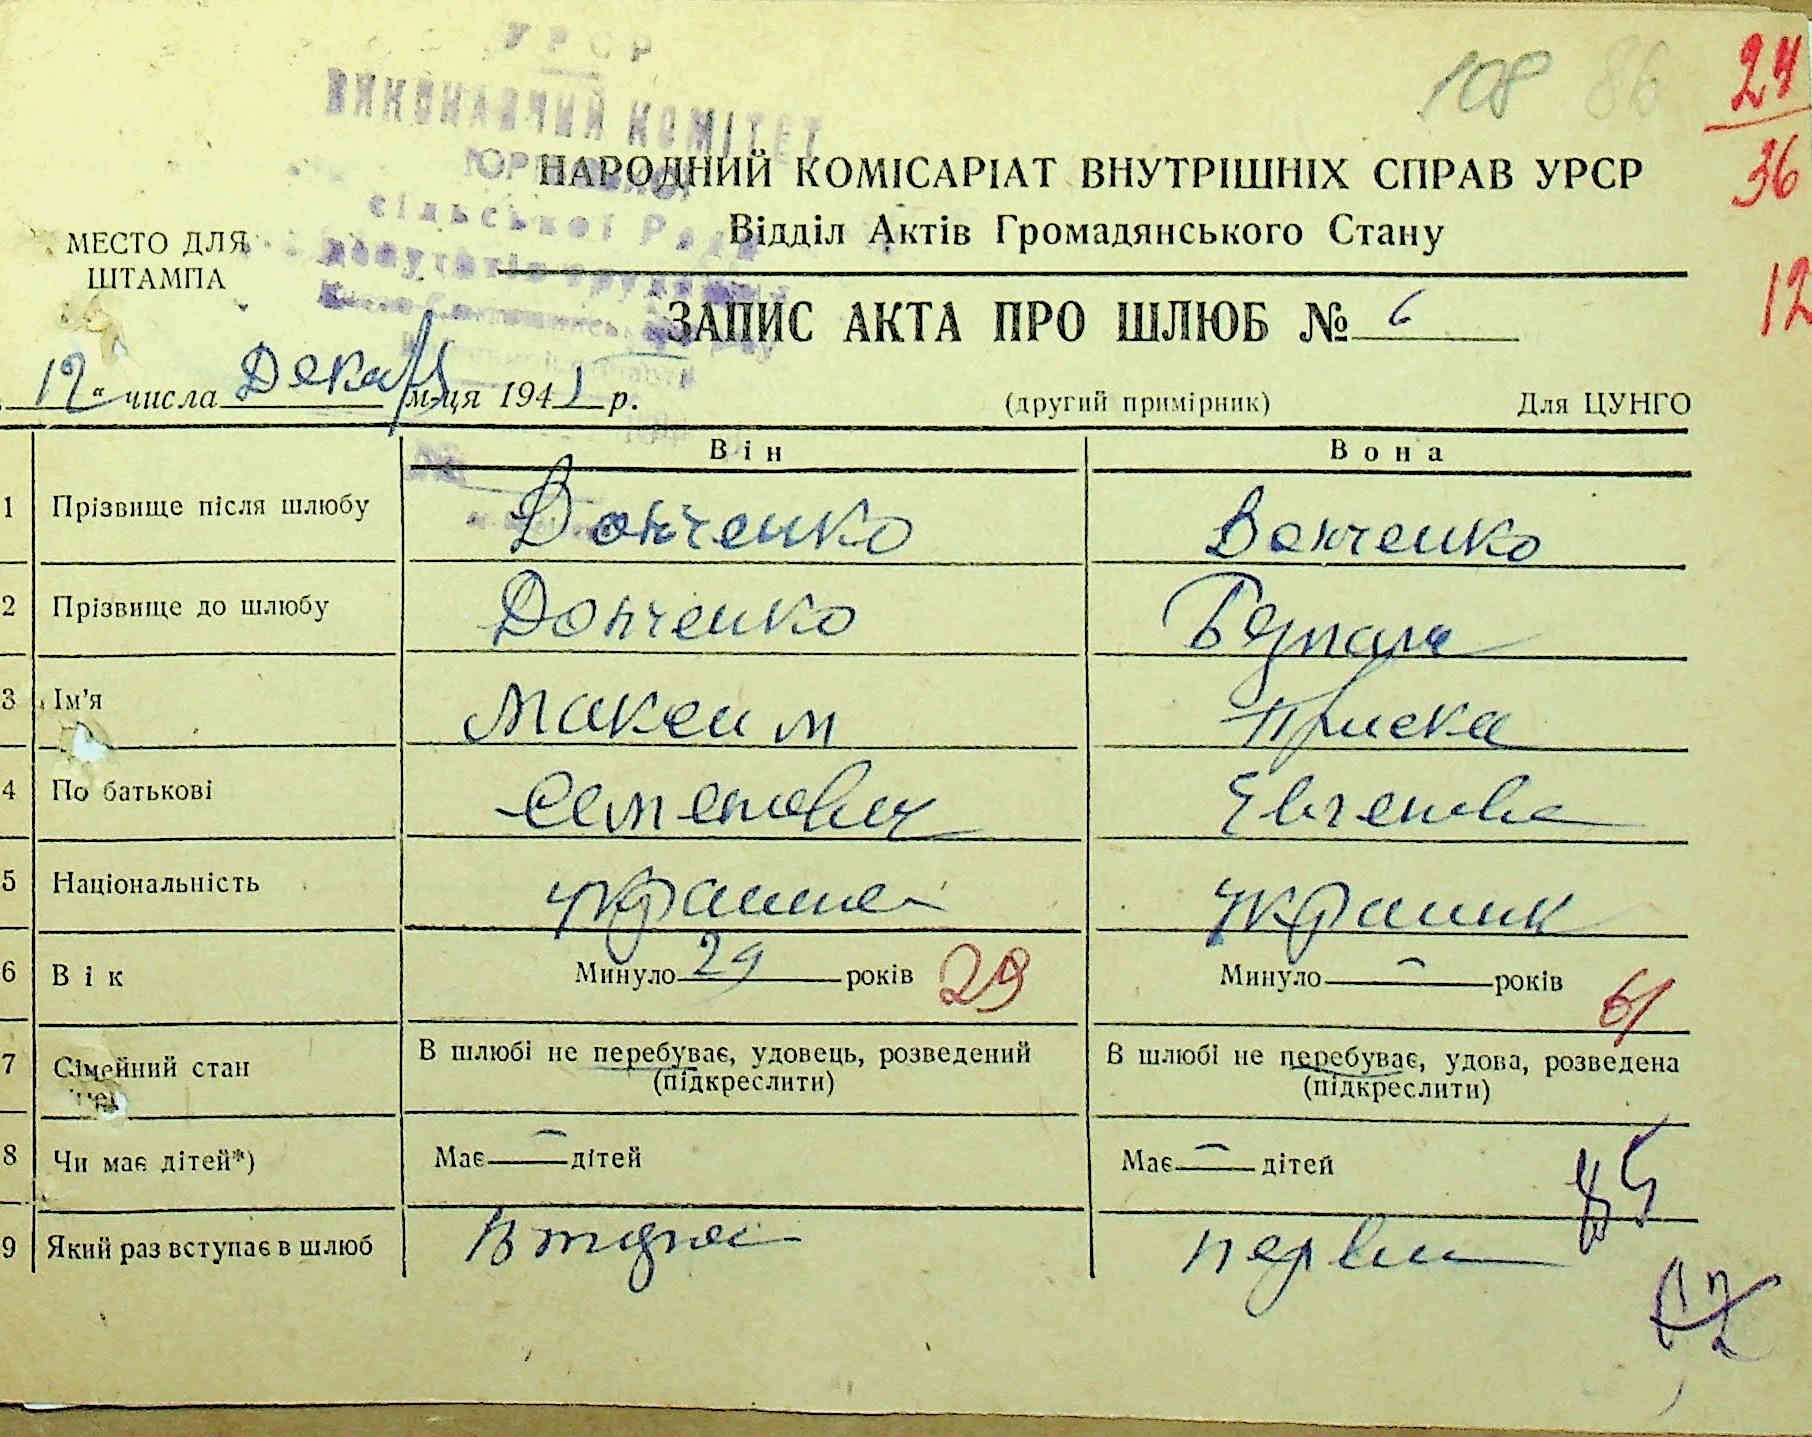 УРСР
ВИКОНАВЧИЙ КОМІТЕТ
сільської Ради
депутатів трудящих
108 86
24
36
12
НАРОДНИЙ КОМІСАРІАТ ВНУТРІШНІХ СПРАВ УРСР
Відділ Актів Громадянського Стану
МЕСТО ДЛЯ
ШТАМПА
ЗАПИС АКТА ПРО ШЛЮБ № 6
12 " числа Декабр м-ця 1941 р.
(другий примірник)
Для ЦУНГО
Він Вона
1 Прізвище після шлюбу Донченко Донченко
2 Прізвище до шлюбу Донченко
3 Ім'я Максим Приска
4 По батькові Семенович Евгеновна
5 Національність украинец украинк
6 Вік Минуло 29 років 29 Минуло – років 61
7 Сімейний стан В шлюбі не перебуває, удовець, розведений В шлюбі не перебуває, удова, розведена
(підкреслити) (підкреслити)
8 Чи має дітей*) Має – дітей Має – дітей
9 Який раз вступає в шлюб Второй первий